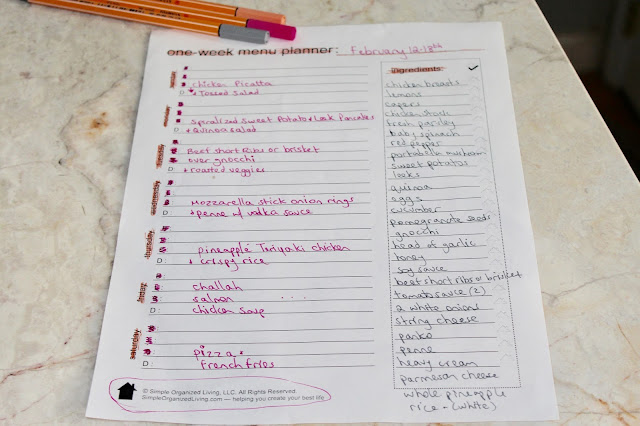 one-week menu planner: February 12-18th
chicken Picatta
D: + Tossed Salad
Spiralized Sweet Potato + Leek Pancakes
D: + Quinoa Salad
Beef short Ribs or brisket
over gnocchi
D: + roasted veggies
wednesday
Mozzarella stick onion rings
D: + penne w/ vodka sauce
thursday
pineapple Teriyaki chicken
D: + crispy rice
friday
challah
salmon
D: chicken soup
saturday
pizza +
D: french fries
© Simple Organized Living, LLC. All Rights Reserved.
SimpleOrganizedLiving.com — helping you create your best life
ingredients: ✓
chicken breasts
lemons
capers
chicken stock
fresh parsley
baby spinach
red pepper
portabella mushroom
sweet potatoes
leeks
quinoa
eggs
cucumber
pomegranate seeds
gnocchi
head of garlic
honey
soy sauce
beef short ribs or brisket
tomato sauce (2)
2 white onions
string cheese
panko
penne
heavy cream
parmesan cheese
whole pineapple
rice - (white)